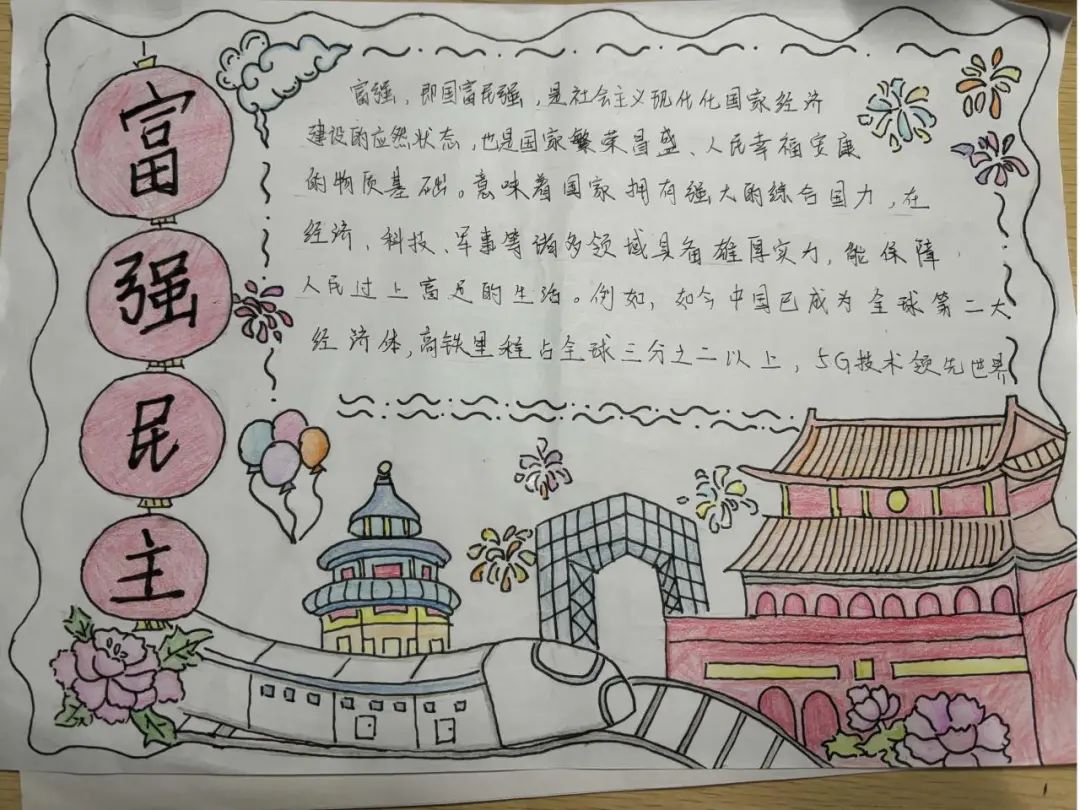 富强民主
富强，即国富民强，是社会主义现代化国家经济
建设的应然状态，也是国家繁荣昌盛、人民幸福安康
的物质基础。意味着国家拥有强大的综合国力，在
经济、科技、军事等诸多领域具备雄厚实力，能保障
人民过上富足的生活。例如，如今中国已成为全球第二大
经济体，高铁里程占全球三分之二以上，5G技术领先世界